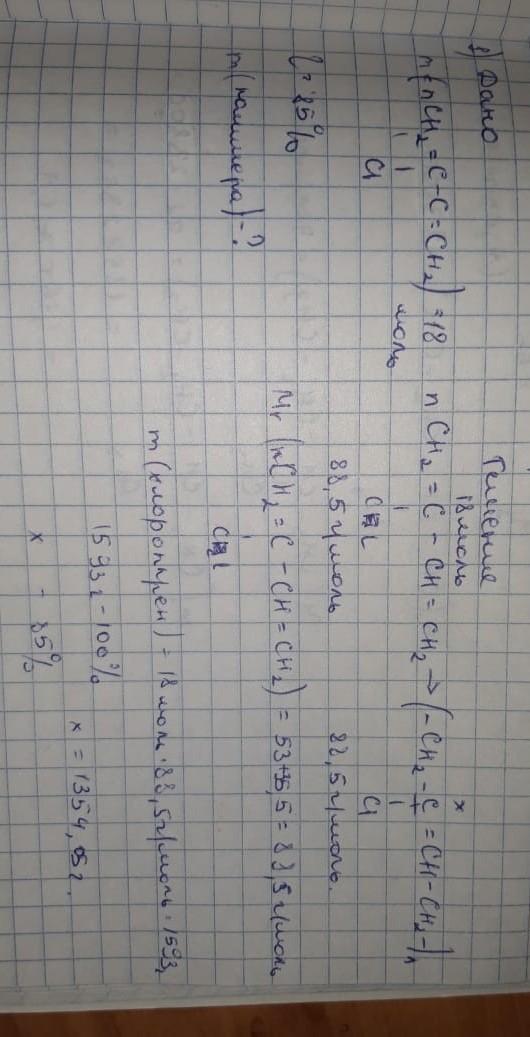 1) Дано
n(nCH₂=C-C=CH₂)=18
Cl
моль
η = 85%
m(полимера)-?
Решение
18 моль
x
n CH₂ = C - CH = CH₂ → (-CH₂-C=CH-CH₂-)n
Cl
Cl
88,5 г/моль
88,5 г/моль.
Mr (nCH₂=C-CH=CH₂) = 53+35,5 = 88,5 г/моль
Cl
m(хлоропрен) = 18 моль·88,5 г/моль = 1593г
1593г - 100%
x - 85%
x = 1354,05г.